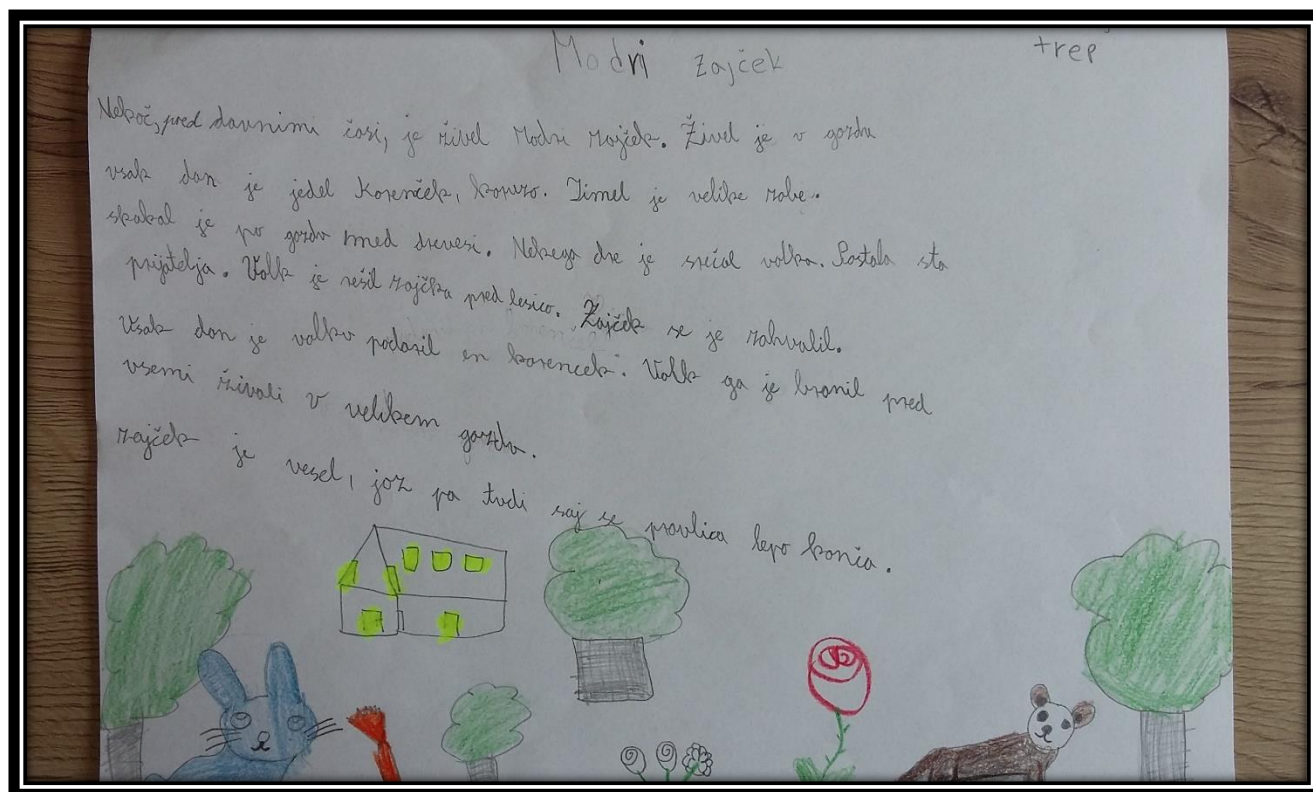 Modri zajček
trep
Nekoč, pred davnimi časi, je živel Modri zajček. Živel je v gozdu
vsak dan je jedel Korenček, koruzo. Imel je velike zobe.
skakal je po gozdu med drevesi. Nekega dne je srečal volka. Postala sta
prijatelja. Volk je rešil zajčka pred lesico. Zajček se je zahvalil.
Vsak dan je volku podaril en korencek. Volk ga je branil pred
vsemi živali v velikem gozdu.
zajček je vesel, joz pa tudi saj se pravlica lepo konča.